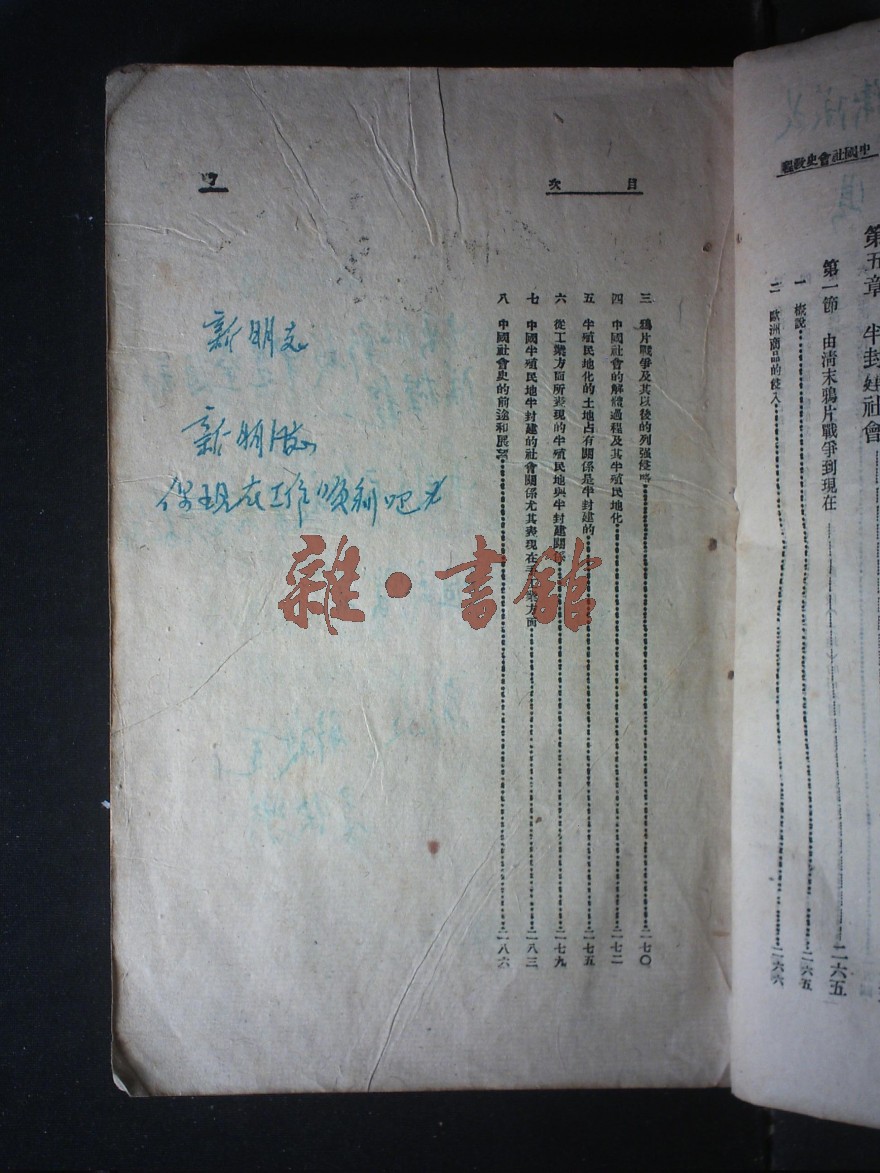 中國社會史
第五章 半封建社會
第一節 由清末鴉片戰爭到現在 二六五
一 概說 二六五
二 歐洲商品的侵入 二六六
目次
三 鴉片戰爭及其以後的列强侵略 二七〇
四 中國社會的解體過程及其半殖民地化 二七二
五 半殖民地化的土地占有關係是半封建的 二七五
六 從工業方面所表現的半殖民地與半封建關係 二七九
七 中國半殖民地半封建的社會關係尤其表現在手工業方面 二八三
八 中國社會史的前途和展望 二八六
新明志
新明志
你現在工作順利吧
雜·書館